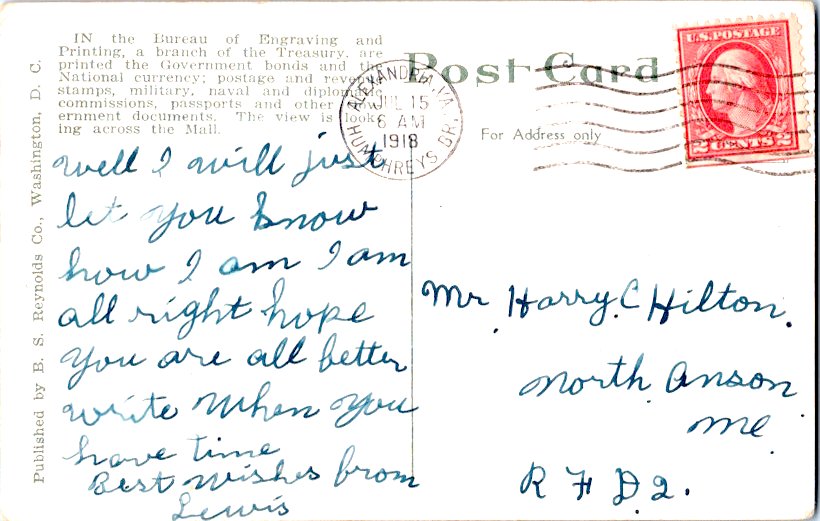 IN the Bureau of Engraving and
Printing, a branch of the Treasury. are
printed the Government bonds and the
National currency; postage and revenue
stamps, military, naval and diplomatic
commissions, passports and other Gov-
ernment documents. The view is look-
ing across the Mall.
Published by B. S. Reynolds Co., Washington, D. C.
Post Card
For Address only
ALEXANDRIA, VA.
JUL 15
6 AM
1918
HUMPHREYS BR.
U.S. POSTAGE
2 CENTS 2
Well I will just
let you know
how I am I am
all right hope
you are all better
write When you
have time
Best Wishes from
Lewis
Mr Harry C Hilton.
North Anson
Me
R F D 2.